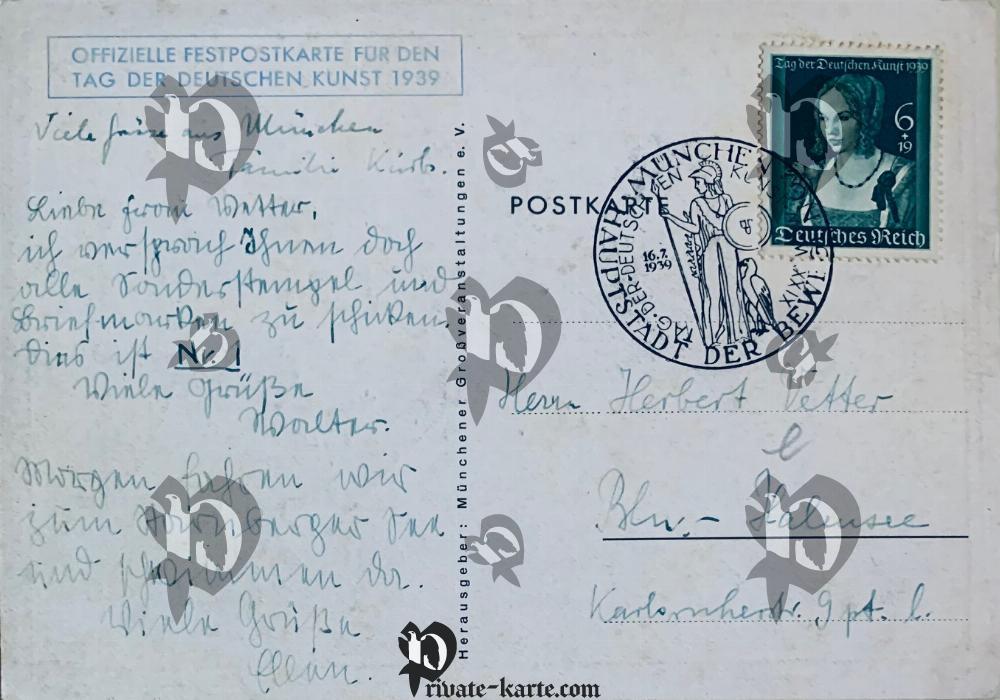 OFFIZIELLE FESTPOSTKARTE FÜR DEN
TAG DER DEUTSCHEN KUNST 1939
Viele Grüße aus München
Familie
Liebe Vetter,
ich versprach Ihnen doch
alle Sonderstempel und
Briefmarken zu schicken.
Dies ist Nr. 1
Viele Grüße
Walter.
Morgen fahren wir
zum Starnberger See
und schwimmen da.
Viele Grüße
Ellen.
Herausgeber: Münchener Großveranstaltungen e. V.
POSTKARTE
Tag der Deutschen Kunst 1939
6
+
19
Deutsches Reich
MÜNCHEN
HAUPTSTADT DER BEWEGUNG
TAG-DER-DEUTSCHEN KUNST
16.7.
1939
Herrn Herbert Vetter
Bln.- Halensee
Karlsruherstr. 9 pt. l.
Private-karte.com